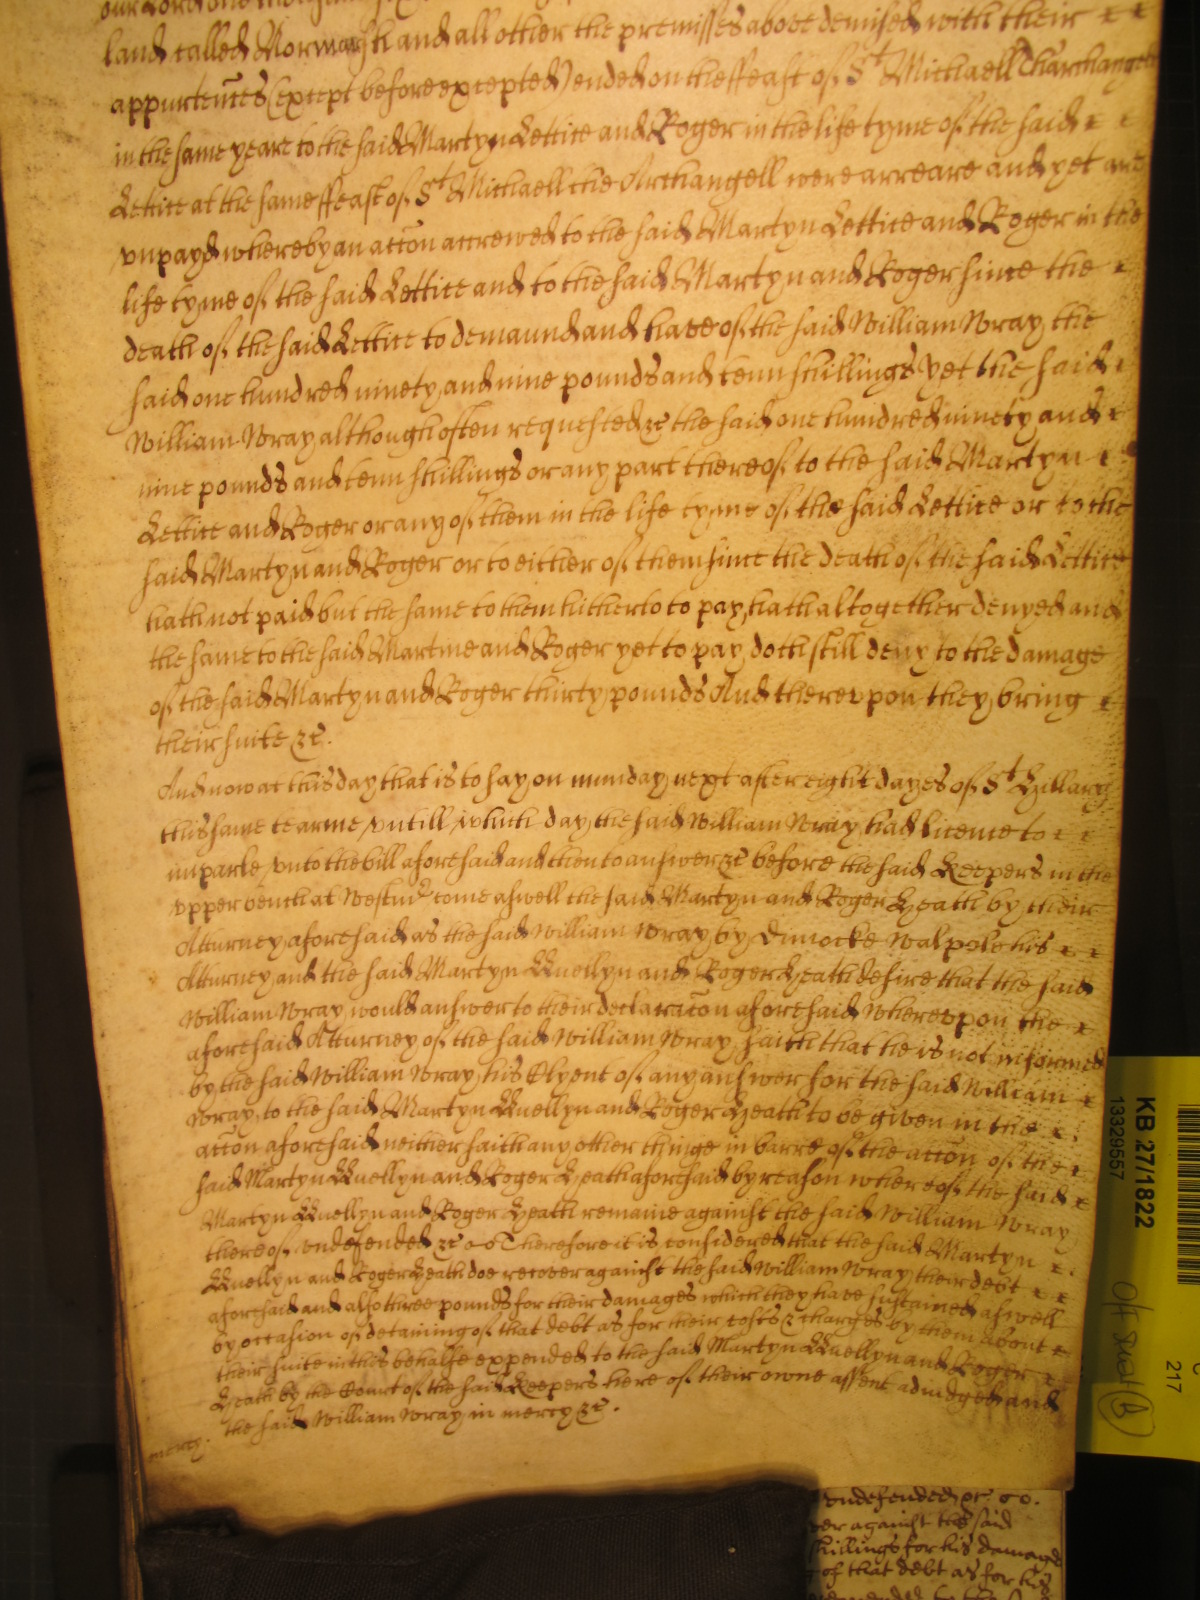 our Lord one thousand six
land called Normarsh and all other the premisses above demised with their
appurtences (except before excepted) ended on the ffeast of St Michaell Tharchangell
in the same yeare to the said Martyn Lettice and Roger in the life tyme of the said
Lettice at the same ffeast of St Michaell the Archangell were arreare and yet are
vnpayd whereby an accon accrewed to the said Martyn Lettice and Roger in the
life tyme of the said Lettice and to the said Martyn and Roger since the
death of the said Lettice to demaund and have of the said William Wray the
said one hundred ninety and nine pounds and tenn shillings yet the said
William Wray although often requested &c the said one hundred ninety and
nine pounds and tenn shillings or any part thereof to the said Martyn
Lettice and Roger or any of them in the life tyme of the said Lettice or to the
said Martyn and Roger or to either of them since the death of the said Lettice
hath not paid but the same to them hitherto to pay hath altogether denyed and
the same to the said Martine and Roger yet to pay doth still deny to the damage
of the said Martyn and Roger thirty pounds And therevpon they bring
their suite &c.
And now at this day that is to say on munday next after eight dayes of St Hillary
this same tearme vntill which day the said William Wray had licence to
imparle vnto the bill aforesaid and then to answer &c before the said Keepers in the
vpper bench at Westmr come aswell the said Martyn and Roger Heath by their
Atturney aforesaid as the said William Wray by Dimocke Walpole his
Atturney and the said Martyn LLuellyn and Roger Heath desire that the said
William Wray would answer to their declaracon aforesaid wherevpon the
aforesaid Atturney of the said William Wray saith that he is not informed
by the said William Wray his Clyent of any answer for the said William
Wray to the said Martyn LLuellyn and Roger Heath to be given in the
accon aforesaid neither saith any other thinge in barre of the accon of the
said Martyn LLuellyn and Roger Heath aforesaid by reason whereof the said
Martyn LLuellyn and Roger Heath remaine against the said William Wray
thereof vndefended &c Therefore it is considered that the said Martyn
LLuellyn and Roger Heath doe recover against the said William Wray their debt
aforesaid and also three pounds for their damages which they have sustained aswell
by occasion of detaining of that debt as for their costs & charges by them about
their suite in this behalfe expended to the said Martyn LLuellyn and Roger
Heath by the Court of the said Keepers here of their owne assent adiudged and
the said William Wray in mercy &c.
mercy.
vndefended &c.
ver against the said
shillings for his damage
of that debt as for his
KB 27/1822
13329557
217